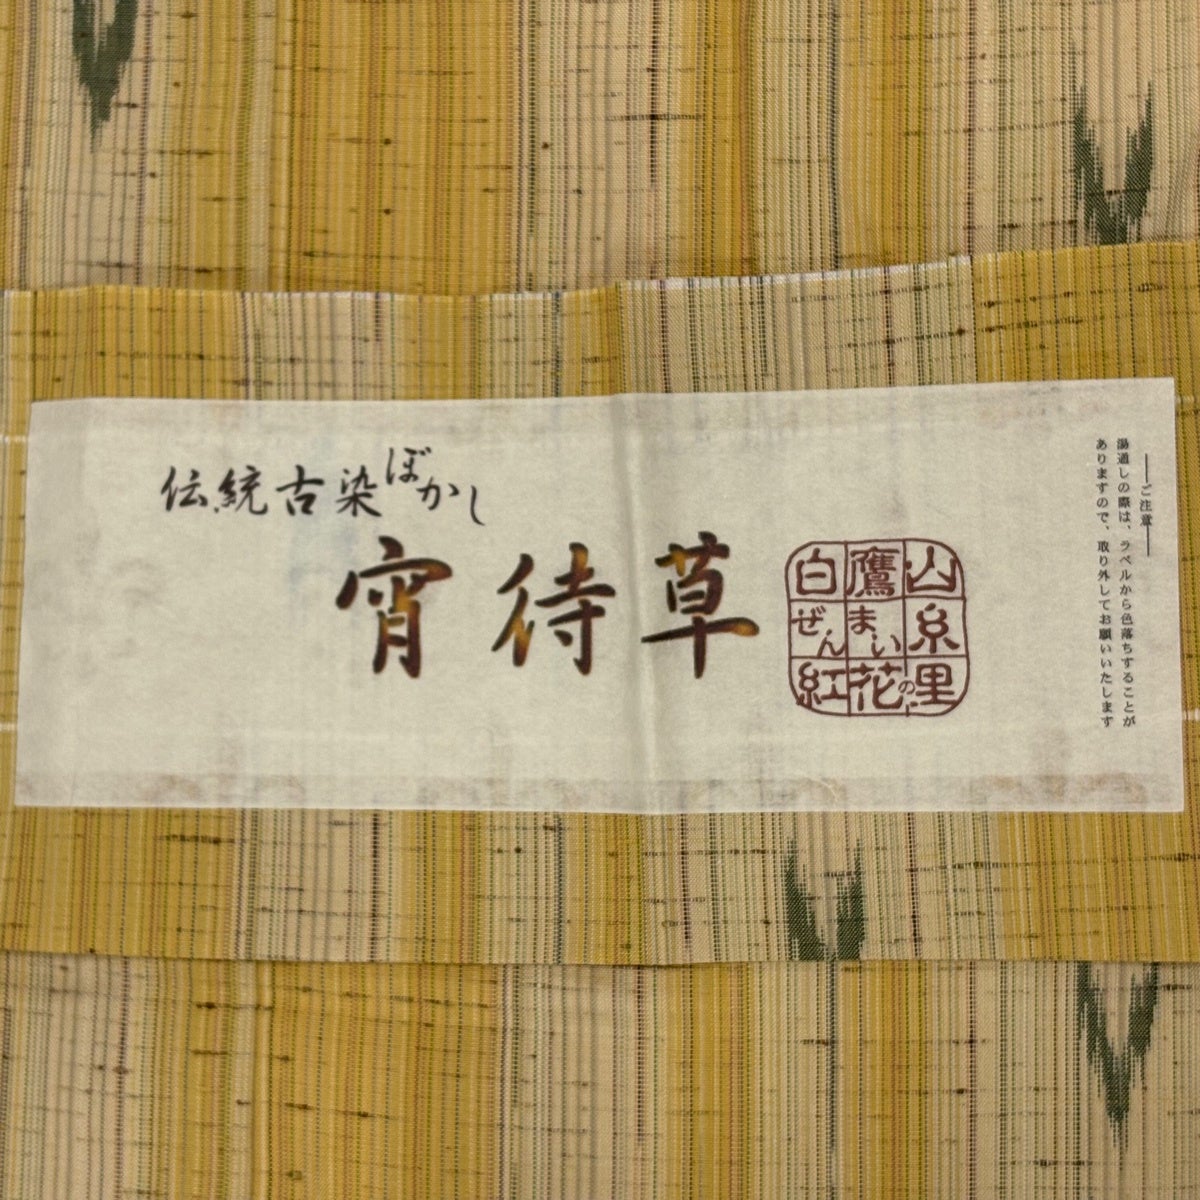 伝統古染ぼかし
宵待草
白鷹山
ぜんまい糸
紅花の里
――ご注意――
湯通しの際は、ラベルから色落ちすることが
ありますので、取り外してお願いいたします